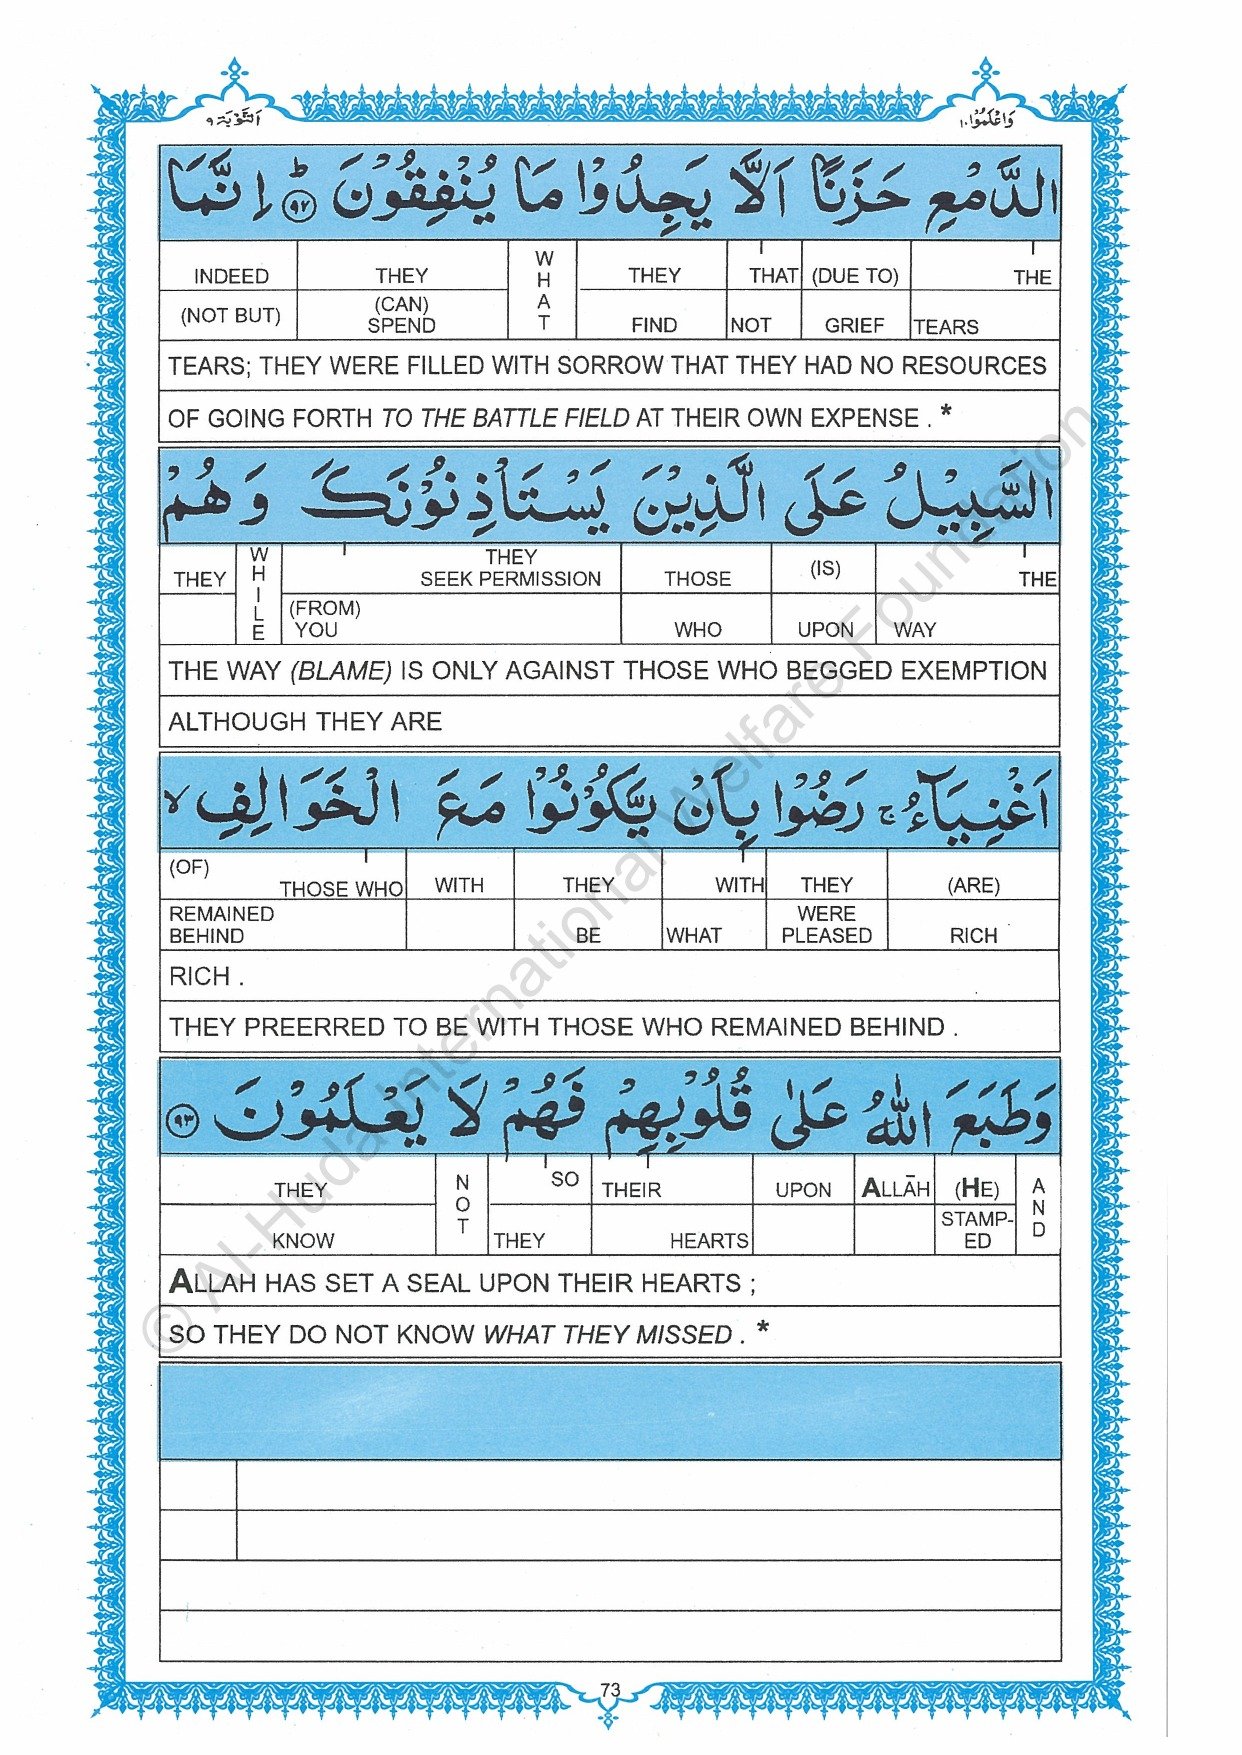 اَلتَّوْبَة ٩
وَاعْلَمُوْا ١٠
الدَّمْعِ حَزَنًا اَلَّا يَجِدُوْا مَا يُنْفِقُوْنَ ؕ ٩٢ اِنَّمَا
INDEED THEY WHAT THEY THAT (DUE TO) THE
(NOT BUT) (CAN) SPEND FIND NOT GRIEF TEARS
TEARS; THEY WERE FILLED WITH SORROW THAT THEY HAD NO RESOURCES
OF GOING FORTH TO THE BATTLE FIELD AT THEIR OWN EXPENSE . *
السَّبِيْلُ عَلَى الَّذِيْنَ يَسْتَاْذِنُوْنَكَ وَهُمْ
THEY WHILE THEY SEEK PERMISSION THOSE (IS) THE
(FROM) YOU WHO UPON WAY
THE WAY (BLAME) IS ONLY AGAINST THOSE WHO BEGGED EXEMPTION
ALTHOUGH THEY ARE
اَغْنِيَآءُ ۚ رَضُوْا بِاَنْ يَّكُوْنُوْا مَعَ الْخَوَالِفِ ۙ
(OF) THOSE WHO WITH THEY WITH THEY (ARE)
REMAINED BEHIND BE WHAT WERE PLEASED RICH
RICH .
THEY PREERRED TO BE WITH THOSE WHO REMAINED BEHIND .
وَطَبَعَ اللّٰهُ عَلٰى قُلُوْبِهِمْ فَهُمْ لَا يَعْلَمُوْنَ ٩٣
THEY NOT SO THEIR UPON ALLĀH (HE) AND
KNOW THEY HEARTS STAMP-ED
ALLAH HAS SET A SEAL UPON THEIR HEARTS ;
SO THEY DO NOT KNOW WHAT THEY MISSED . *
73
© Al-Huda International Welfare Foundation